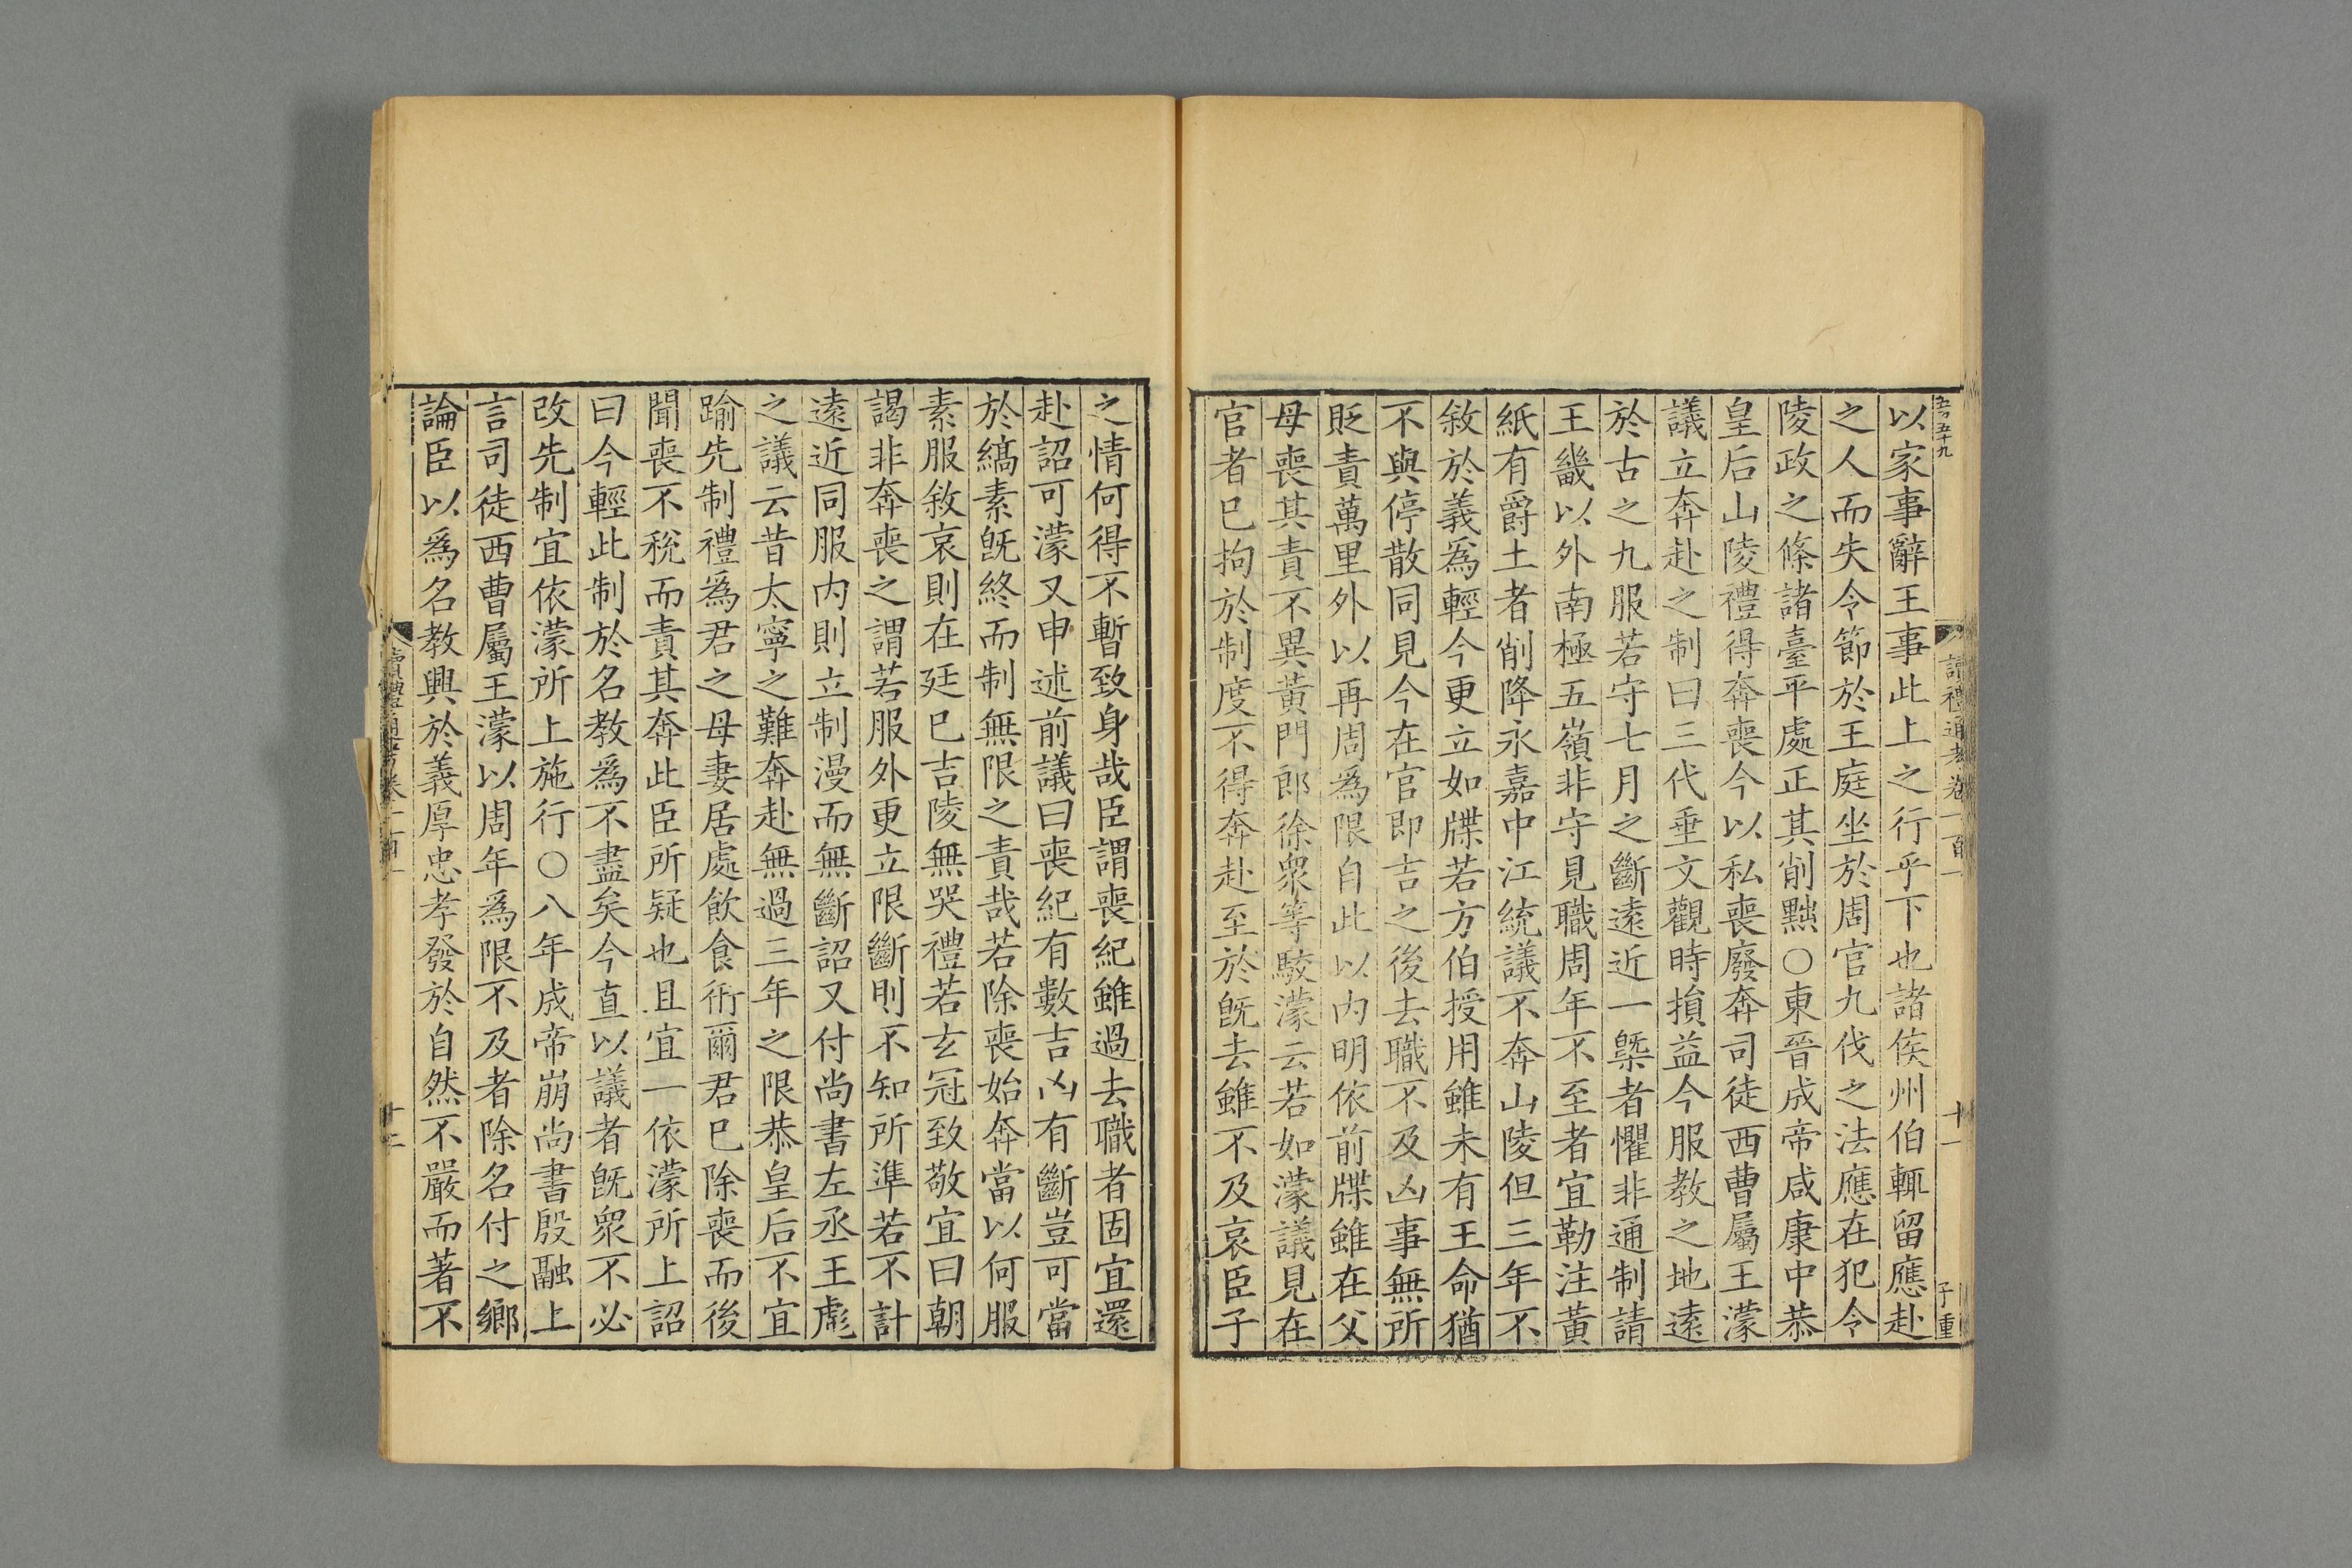 五百五十九
讀禮通考卷一百一
十一
子重
以家事辭王事此上之行乎下也諸侯州伯輒留應赴
之人而失令節於王庭坐於周官九伐之法應在犯令
陵政之條諸臺平處正其削黜○東晉成帝咸康中恭
皇后山陵禮得奔喪今以私喪廢奔司徒西曹屬王濛
議立奔赴之制曰三代垂文觀時損益今服教之地遠
於古之九服若守七月之斷遠近一槩者懼非通制請
王畿以外南極五嶺非守見職周年不至者宜勒注黃
紙有爵土者削降永嘉中江統議不奔山陵但三年不
敘於義爲輕今更立如牒若方伯授用雖未有王命猶
不與停散同見今在官即吉之後去職不及凶事無所
貶責萬里外以再周爲限自此以內明依前牒雖在父
母喪其責不異黃門郎徐眾等駮濛云若如濛議見在
官者已拘於制度不得奔赴至於旣去雖不及哀臣子
之情何得不暫致身哉臣謂喪紀雖過去職者固宜還
赴詔可濛又申述前議曰喪紀有數吉凶有斷豈可當
於縞素旣終而制無限之責哉若除喪始奔當以何服
素服敘哀則在廷已吉陵無哭禮若玄冠致敬宜曰朝
謁非奔喪之謂若服外更立限斷則不知所準若不計
遠近同服內則立制漫而無斷詔又付尚書左丞王彪
之議云昔太寧之難奔赴無過三年之限恭皇后不宜
踰先制禮爲君之母妻居處飲食衎爾君已除喪而後
聞喪不稅而責其奔此臣所疑也且宜一依濛所上詔
曰今輕此制於名教爲不盡矣今直以議者旣眾不必
改先制宜依濛所上施行○八年成帝崩尚書殷融上
言司徒西曹屬王濛以周年爲限不及者除名付之鄉
論臣以爲名教興於義厚忠孝發於自然不嚴而著不
讀禮通考卷一百一
十二